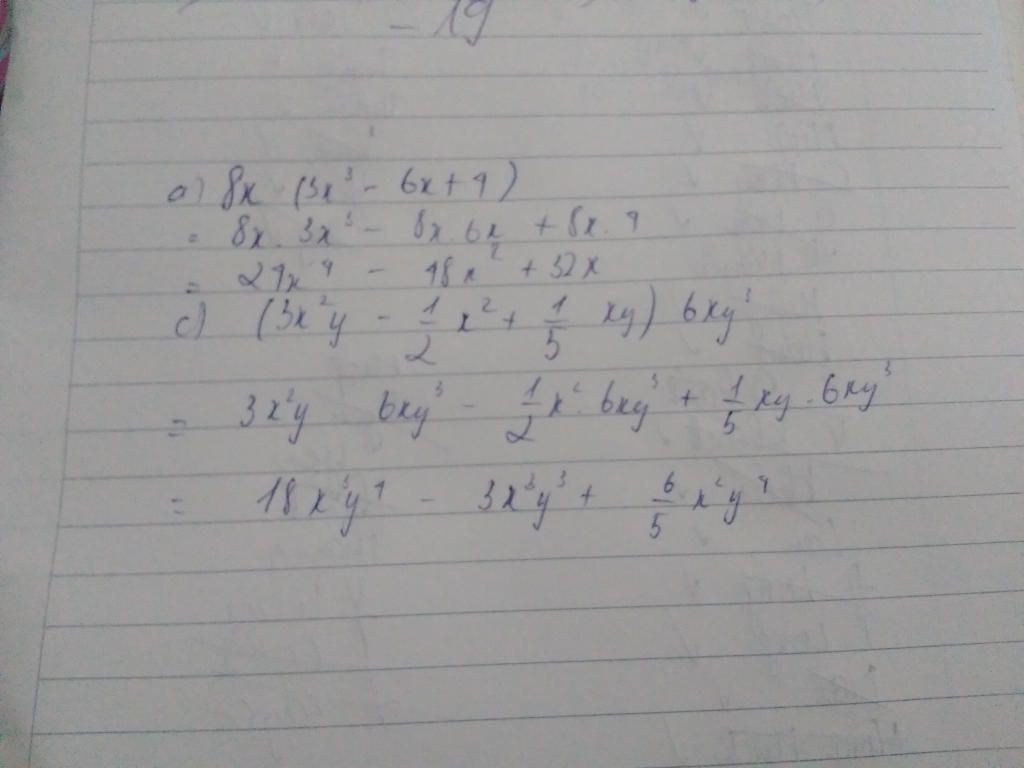 - 19
a) 8x (3x³ - 6x + 4)
= 8x . 3x³ - 8x . 6x + 8x . 4
= 24x⁴ - 48x² + 32x
c) (3x²y - 1/2 x² + 1/5 xy) 6xy³
= 3x²y 6xy³ - 1/2 x² . 6xy³ + 1/5 xy . 6xy³
= 18x³y⁴ - 3x³y³ + 6/5 x²y⁴